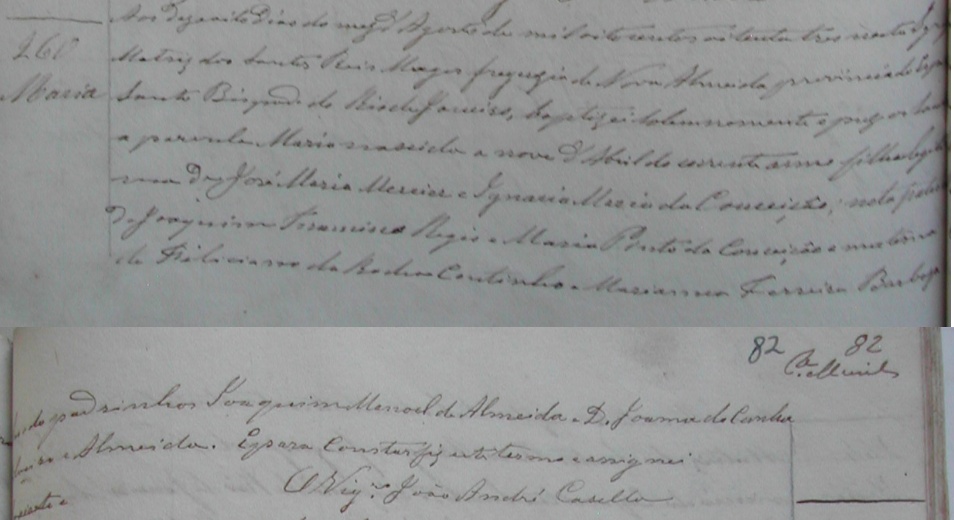 260
Maria
Aos dezoito dias do mez d'Agosto de mil oito centos oitenta tres nesta Igreja
Matriz dos Santos Reis Magos freguezia de Nova Almeida provincia do Espi
Santo Bispado do Rio de Janeiro, baptizei solemnemente e puz os
a parvula Maria nascida a nove d'Abril do corrente anno filha legiti
ma de José Maria Mercier e Ignacia Maria da Conceição; neta
de Joaquim Francisco Regio e Maria Pinto da Conceição e materna
de Feliciano da Rocha Coutinho e Marianna Ferreira Barboza
82 82
padrinhos Joaquim Manoel de Almeida e D. Joanna da Cunha
e Almeida. E para constar fiz este termo e assignei
O Vigº João André Casella